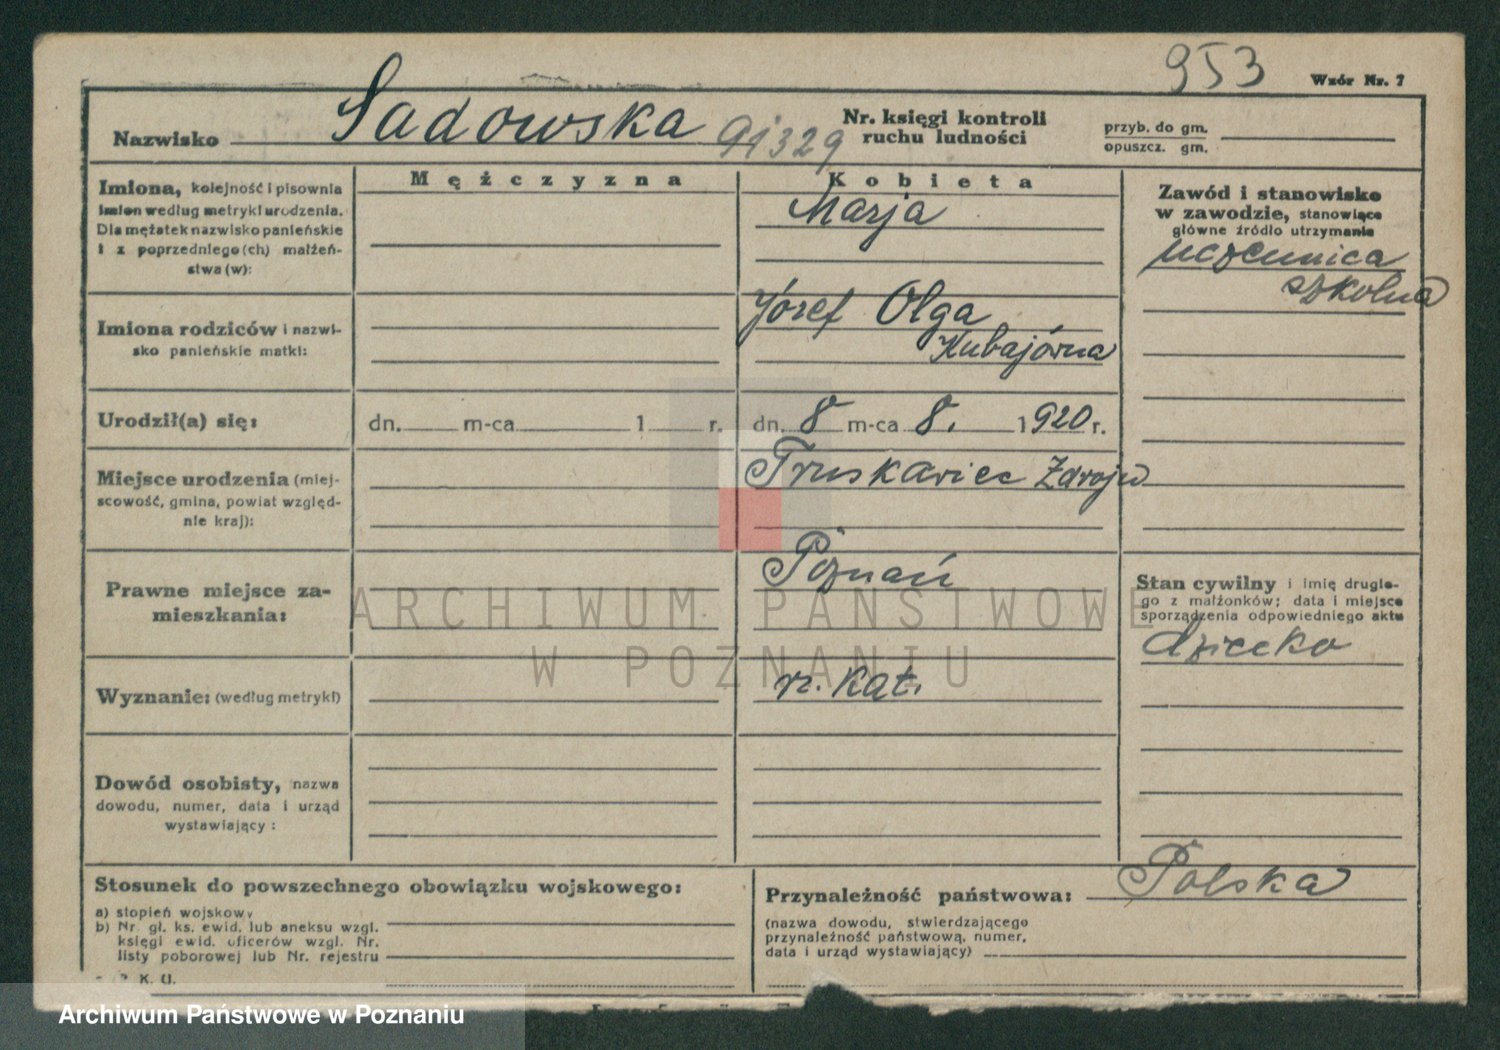 953 Wzór Nr. 7
Nazwisko Sadowska 91329 Nr. księgi kontroli ruchu ludności przyb. do gm. opuszcz. gm.
Mężczyzna Kobieta
Imiona, kolejność i pisownia
imion według metryki urodzenia.
Dla mężatek nazwisko panieńskie
i z poprzedniego (ch) małżeń-
stwa (w):
Marja
Zawód i stanowisko
w zawodzie, stanowiące
główne źródło utrzymania
uczennica
szkolna
Imiona rodziców i nazwi-
sko panieńskie matki:
Józef Olga
Kubajówna
Urodził(a) się: dn. m-ca 1 r. dn. 8 m-ca 8. 1920 r.
Miejsce urodzenia (miej-
scowość, gmina, powiat względ-
nie kraj):
Truskawiec Zdroju
Prawne miejsce za-
mieszkania:
Poznań
Stan cywilny i imię drugie-
go z małżonków; data i miejsce
sporządzenia odpowiedniego aktu
dziecko
ARCHIWUM PAŃSTWOWE
W POZNANIU
Wyznanie: (według metryki) rz. kat.
Dowód osobisty, nazwa
dowodu, numer, data i urząd
wystawiający:
Stosunek do powszechnego obowiązku wojskowego:
a) stopień wojskowy
b) Nr. gł. ks. ewid. lub aneksu wzgl.
księgi ewid. oficerów wzgl. Nr.
listy poborowej lub Nr. rejestru
P. K. U.
Przynależność państwowa: Polska
(nazwa dowodu, stwierdzającego
przynależność państwową, numer,
data i urząd wystawiający)
Archiwum Państwowe w Poznaniu